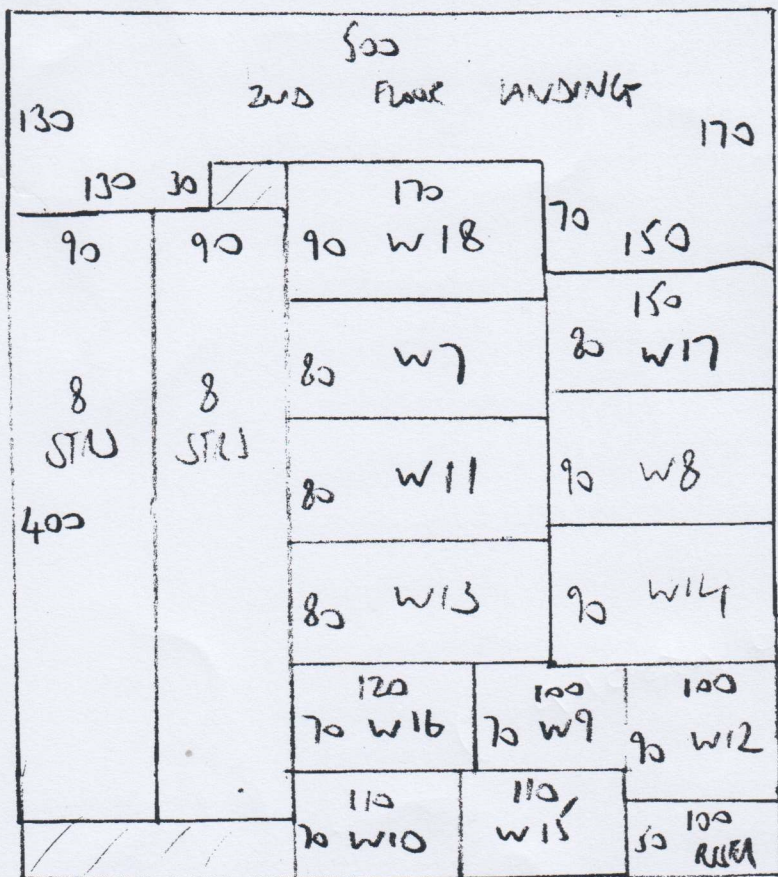 500
2ND FLOOR LANDING
130
170
130 30
170
90 W18
70
150
90
90
150
80 W17
80 W7
8
STRS
8
STRS
80 W11
90 W8
400
80 W13
90 W14
120
70 W16
100
70 W9
100
90 W12
110
70 W10
110
W15
50 100
RISER